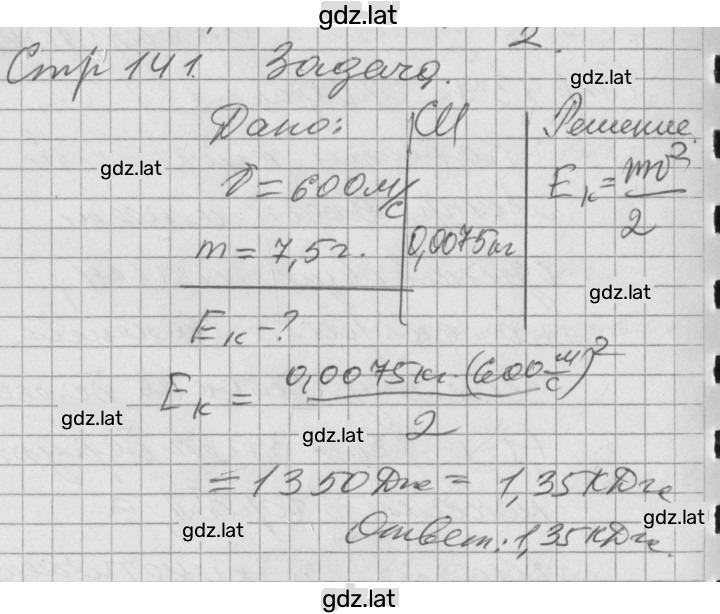 gdz.lat
2.
Стр 141. Задача.
gdz.lat
Дано: СИ Решение.
gdz.lat
v = 600 м/с Eк = mv²/2
m = 7,5 г. 0,0075 кг
gdz.lat
Eк - ?
Eк = 0,0075 кг · (600 м/с)² / 2
gdz.lat
gdz.lat
= 1350 Дж = 1,35 кДж
gdz.lat
gdz.lat
Ответ: 1,35 кДж.
gdz.lat